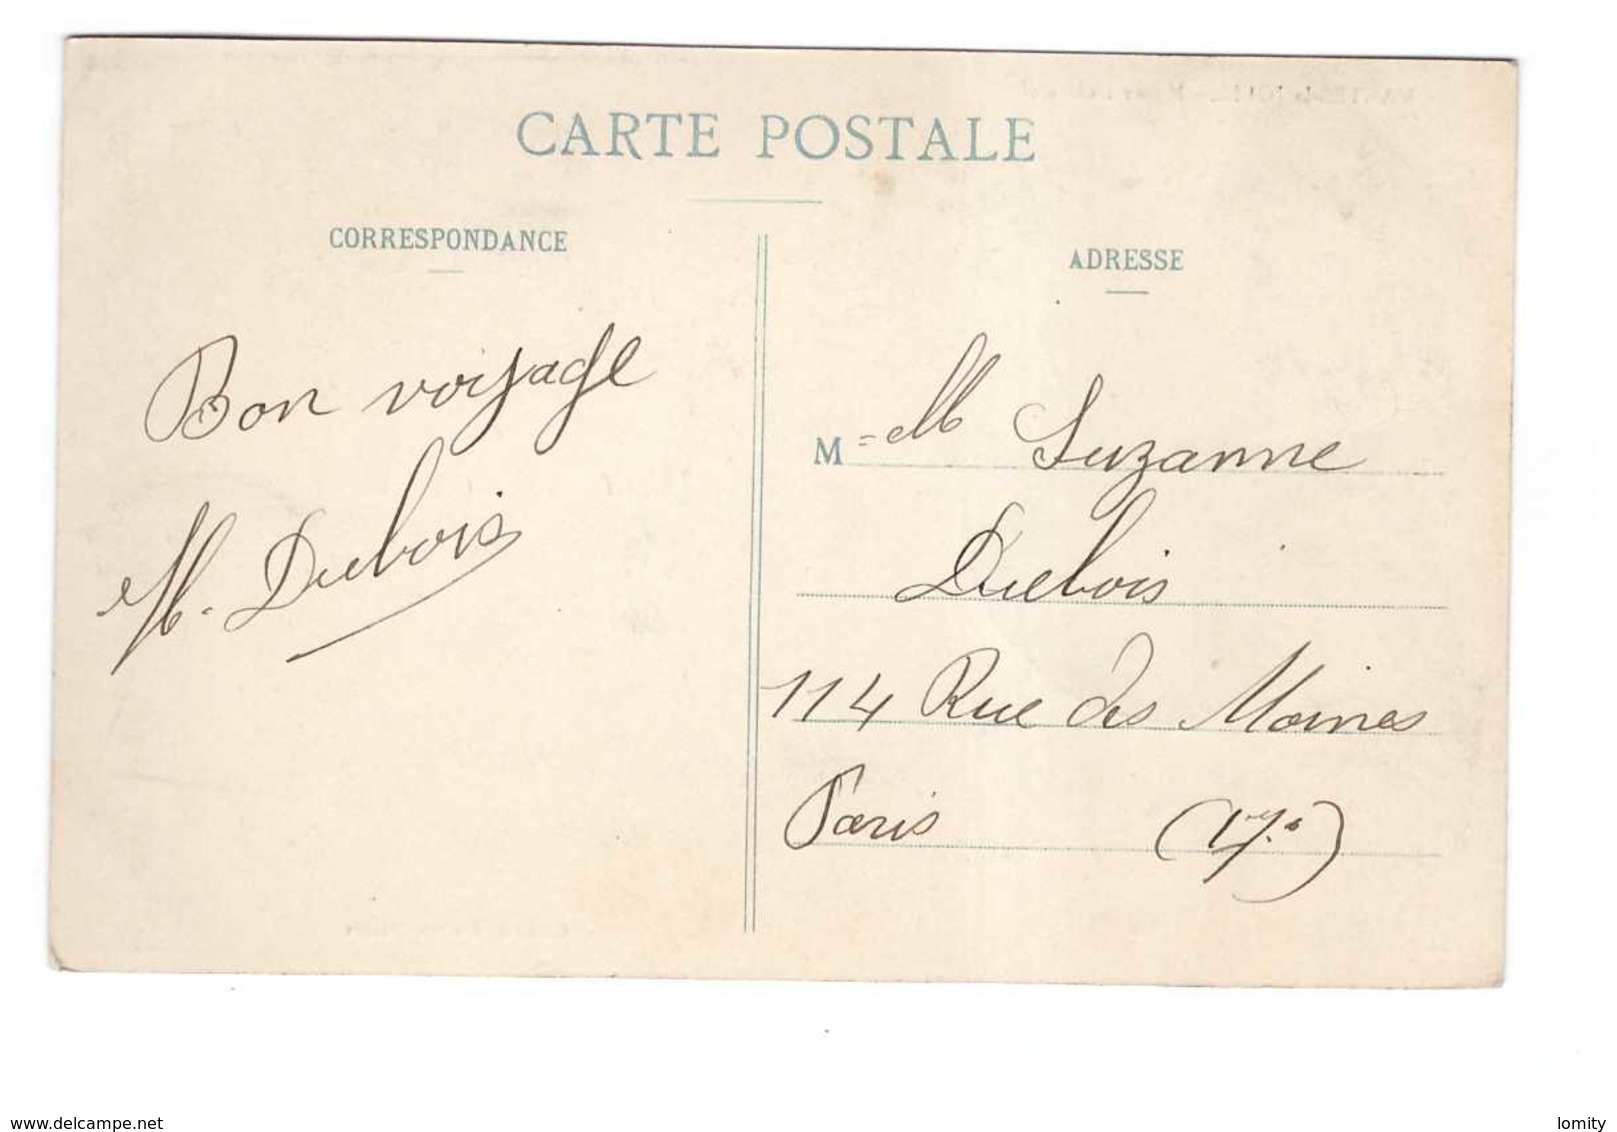 CARTE POSTALE
CORRESPONDANCE
Bon voyage
M. Dubois
ADRESSE
M = elle Suzanne
Dubois
114 Rue des Moines
Paris (17e)
www.delcampe.net
lomity